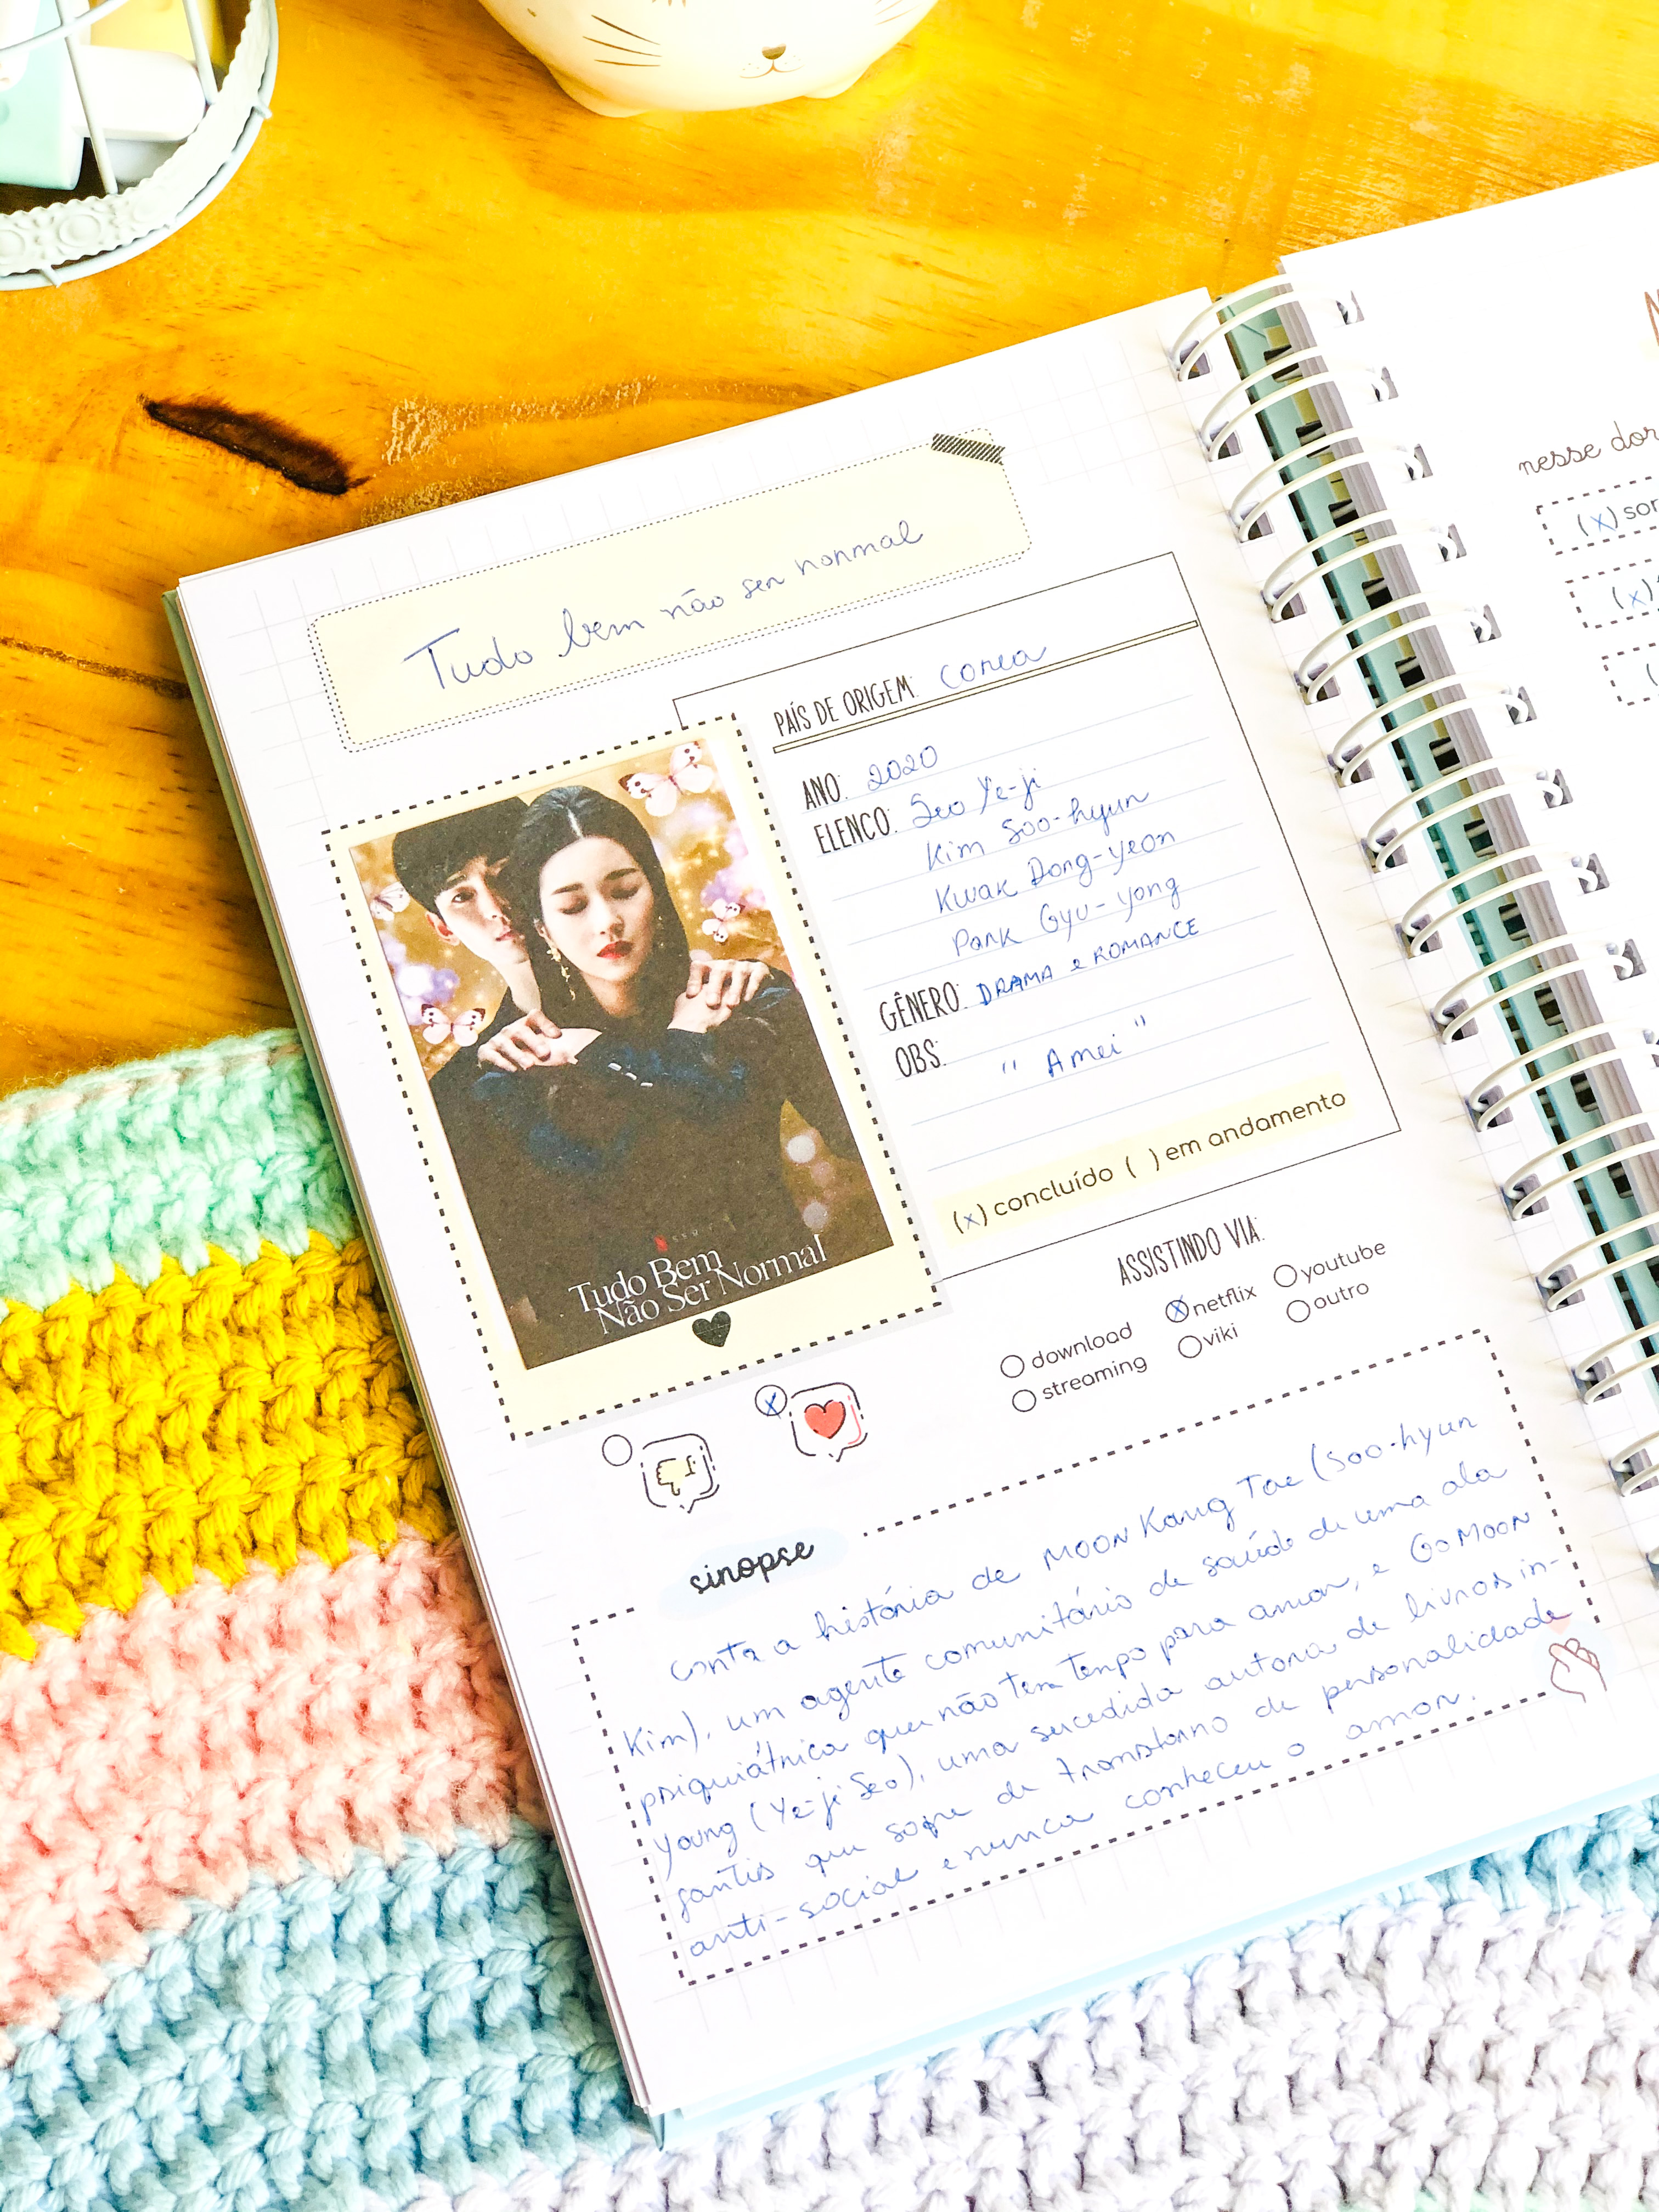 Tudo bem não ser normal
PAÍS DE ORIGEM: Corea
ANO: 2020
ELENCO: Seo Ye-ji
Kim Soo-hyun
Kwak Dong-yeon
Park Gyu-yong
GÊNERO: DRAMA e ROMANCE
OBS: "Amei"
(x) concluído ( ) em andamento
Tudo Bem
Não Ser Normal
ASSISTINDO VIA:
download netflix youtube
streaming viki outro
sinopse
conta a história de MOON Kang Tae (Soo-hyun
Kim), um agente comunitário de saúde de uma ala
psiquiátrica que não tem tempo para amar, e Go MOON
Young (Ye-ji Seo), uma sucedida autora de livros in-
fantis que sofre de transtorno de personalidade
anti-social e nunca conheceu o amor.
nesse dor
(x) sor
(x)
(